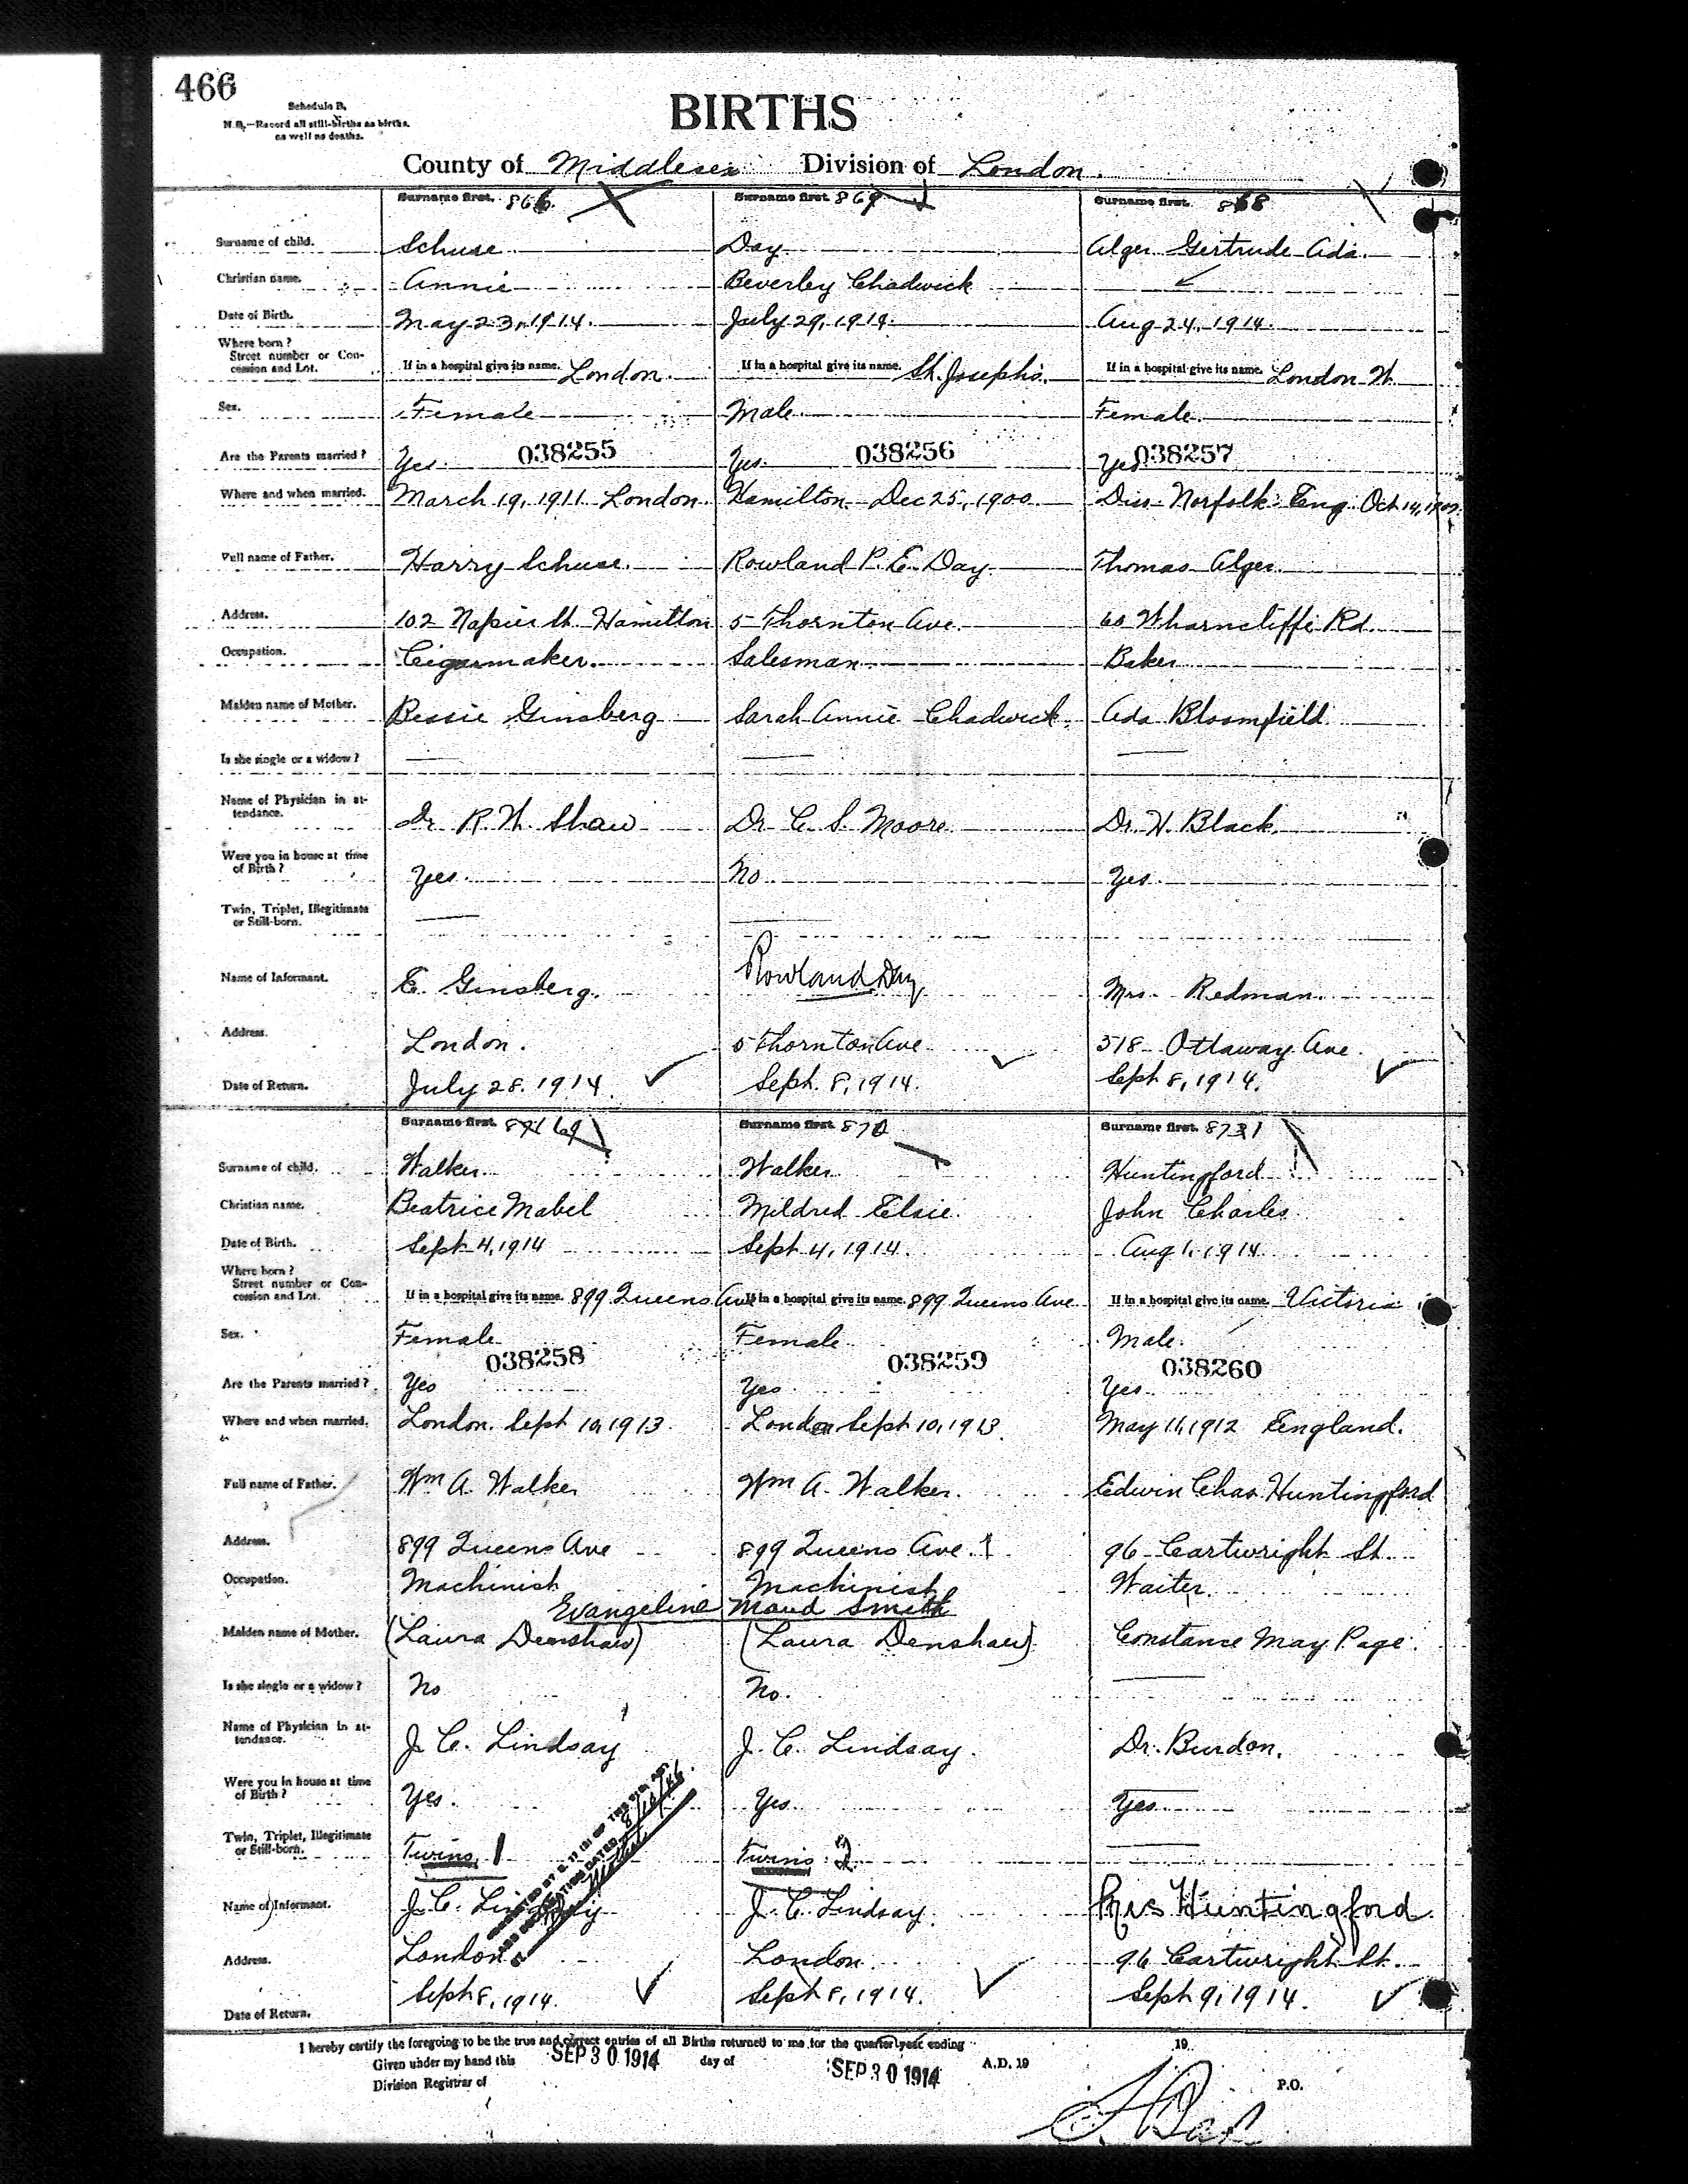 466
Schedule B.
N.B.—Record all still-births as births.
as well as deaths.
BIRTHS
County of Middlesex Division of London.
Surname first. 866. Surname first. 867 Surname first. 868
Surname of child. Schuse Day Alger Gertrude Ada.
Christian name. Annie Beverley Chadwick
Date of Birth. May 23, 1914. July 29, 1914. Aug 24, 1914.
Where born?
Street number or Concession and Lot. If in a hospital give its name. London. If in a hospital give its name. St. Joseph's. If in a hospital give its name. London W.
Sex. Female Male. Female.
038255 038256 038257
Are the Parents married? Yes. Yes. Yes
Where and when married. March 19, 1911 London. Hamilton. Dec 25, 1900. Diss Norfolk Eng. Oct 14,
Full name of Father. Harry Schuse. Rowland P. E. Day. Thomas Alger.
Address. 102 Napier St. Hamilton 5 Thornton Ave. 60 Wharncliffe Rd.
Occupation. Cigarmaker. Salesman Baker
Maiden name of Mother. Bessie Ginsberg Sarah Annie Chadwick. Ada Bloomfield
Is she single or a widow?
Name of Physician in attendance. Dr R. W. Shaw Dr C. S. Moore. Dr. W. Black.
Were you in house at time of Birth? Yes. No. Yes.
Twin, Triplet, Illegitimate or Still-born.
Name of Informant. E. Ginsberg. Rowland Day Mrs. Redman.
Address. London. 5 Thornton Ave 518 Ottaway Ave.
Date of Return. July 28. 1914. Sept. 8, 1914. Sept 8, 1914.
Surname first. 869 Surname first. 870 Surname first. 871
Surname of child. Walker. Walker Huntingford
Christian name. Beatrice Mabel Mildred Elsie. John Charles.
Date of Birth. Sept 4, 1914 Sept 4, 1914. Aug 1, 1914.
Where born?
Street number or Concession and Lot. If in a hospital give its name. 899 Queens Ave If in a hospital give its name. 899 Queens Ave If in a hospital give its name. Victoria
Sex. Female Female Male.
038258 038259 038260
Are the Parents married? Yes Yes. Yes.
Where and when married. London. Sept 10, 1913. London Sept 10, 1913. May 11, 1912 England.
Full name of Father. Wm A. Walker Wm A. Walker. Edwin Chas Huntingford
Address. 899 Queens Ave 899 Queens Ave. 96 Cartwright St.
Occupation. Machinist Machinist Waiter.
Evangeline Maud Smith
Maiden name of Mother. (Laura Denshaw) (Laura Denshaw) Constance May Page.
Is she single or a widow? No No.
Name of Physician in attendance. J. C. Lindsay J. C. Lindsay. Dr. Burdon.
Were you in house at time of Birth? Yes. Yes. Yes
Twin, Triplet, Illegitimate or Still-born. Twins. 1 Twins 2
Name of Informant. J. C. Lindsay J. C. Lindsay. Mrs Huntingford
Address. London. London. 96 Cartwright St.
Date of Return. Sept 8, 1914. Sept 8, 1914. Sept 9, 1914.
I hereby certify the foregoing to be the true and correct entries of all Births returned to me for the quarter year ending 19
Given under my hand this SEP 30 1914 day of SEP 30 1914 A.D. 19
Division Registrar of P.O.